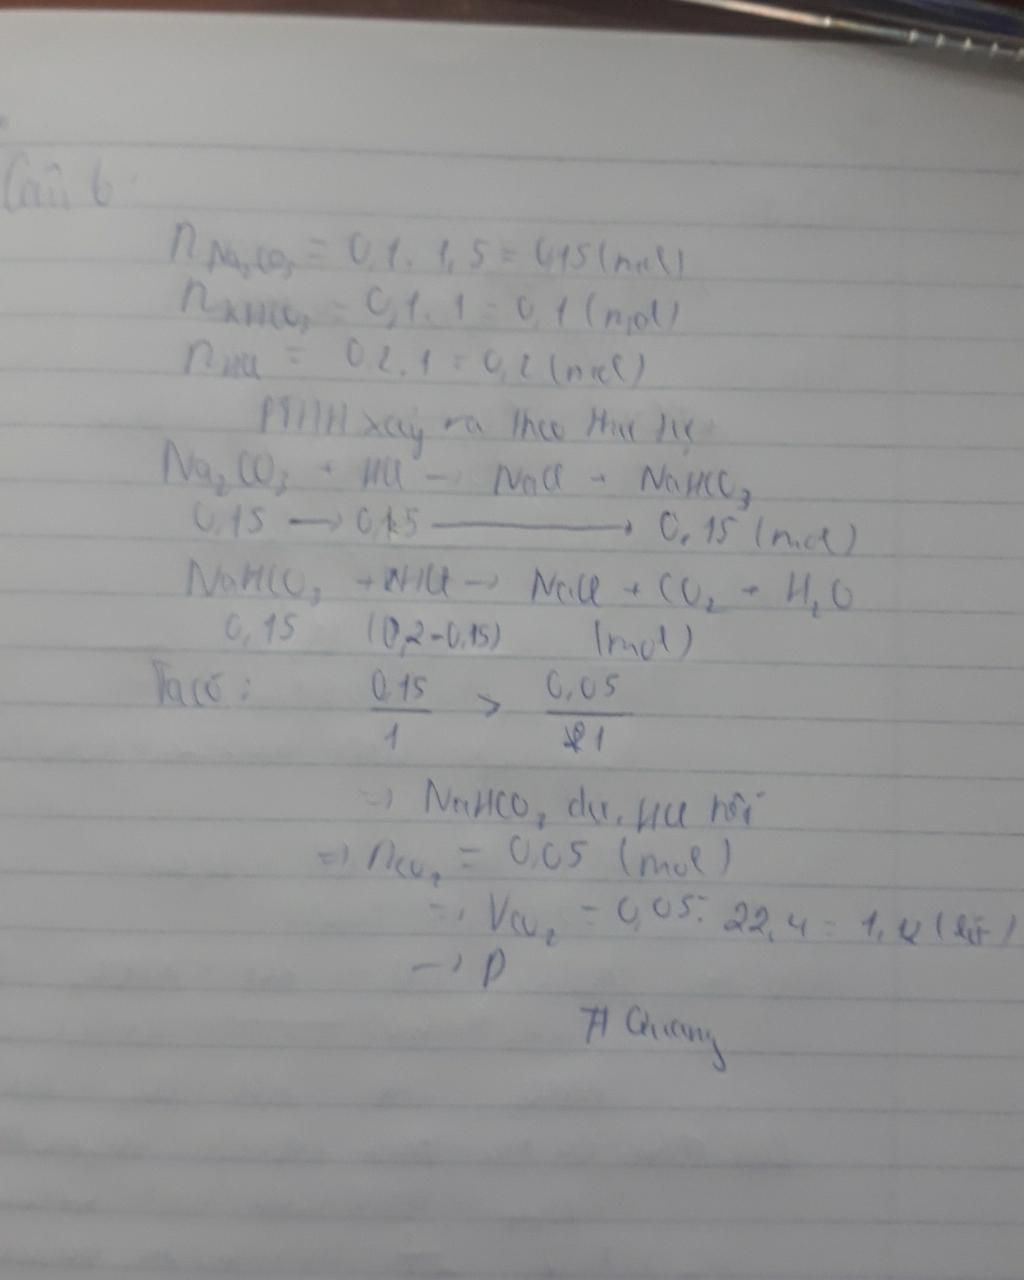 Câu 6:
n Na2CO3 = 0,1. 1,5 = 0,15 (mol)
n KHCO3 = 0,1. 1 = 0,1 (mol)
n HCl = 0,2. 1 = 0,2 (mol)
PTHH xảy ra theo thứ tự
Na2CO3 + HCl → NaCl + NaHCO3
0,15 → 0,15 → 0,15 (mol)
NaHCO3 + HCl → NaCl + CO2 + H2O
0,15 (0,2-0,15) (mol)
Ta có: 0,15/1 > 0,05/1
=> NaHCO3 dư, HCl hết
=> nCO2 = 0,05 (mol)
=> VCO2 = 0,05. 22,4 = 1,12 (lít)
→ D
# Quang